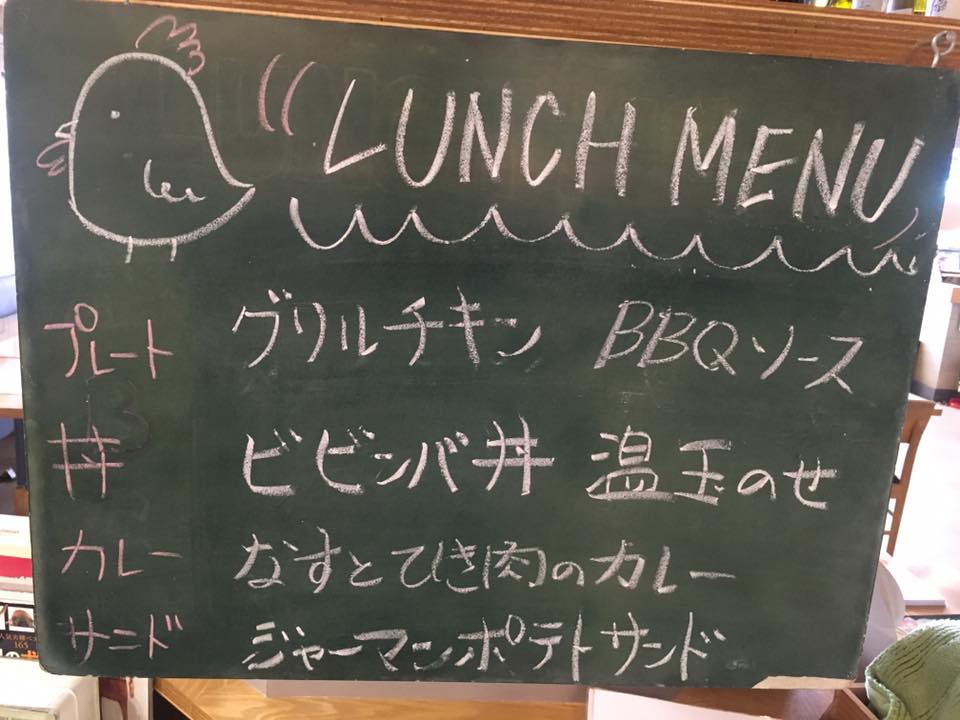 LUNCH MENU
プレート グリルチキン BBQソース
丼 ビビンバ丼 温玉のせ
カレー なすとひき肉のカレー
サンド ジャーマンポテトサンド
165